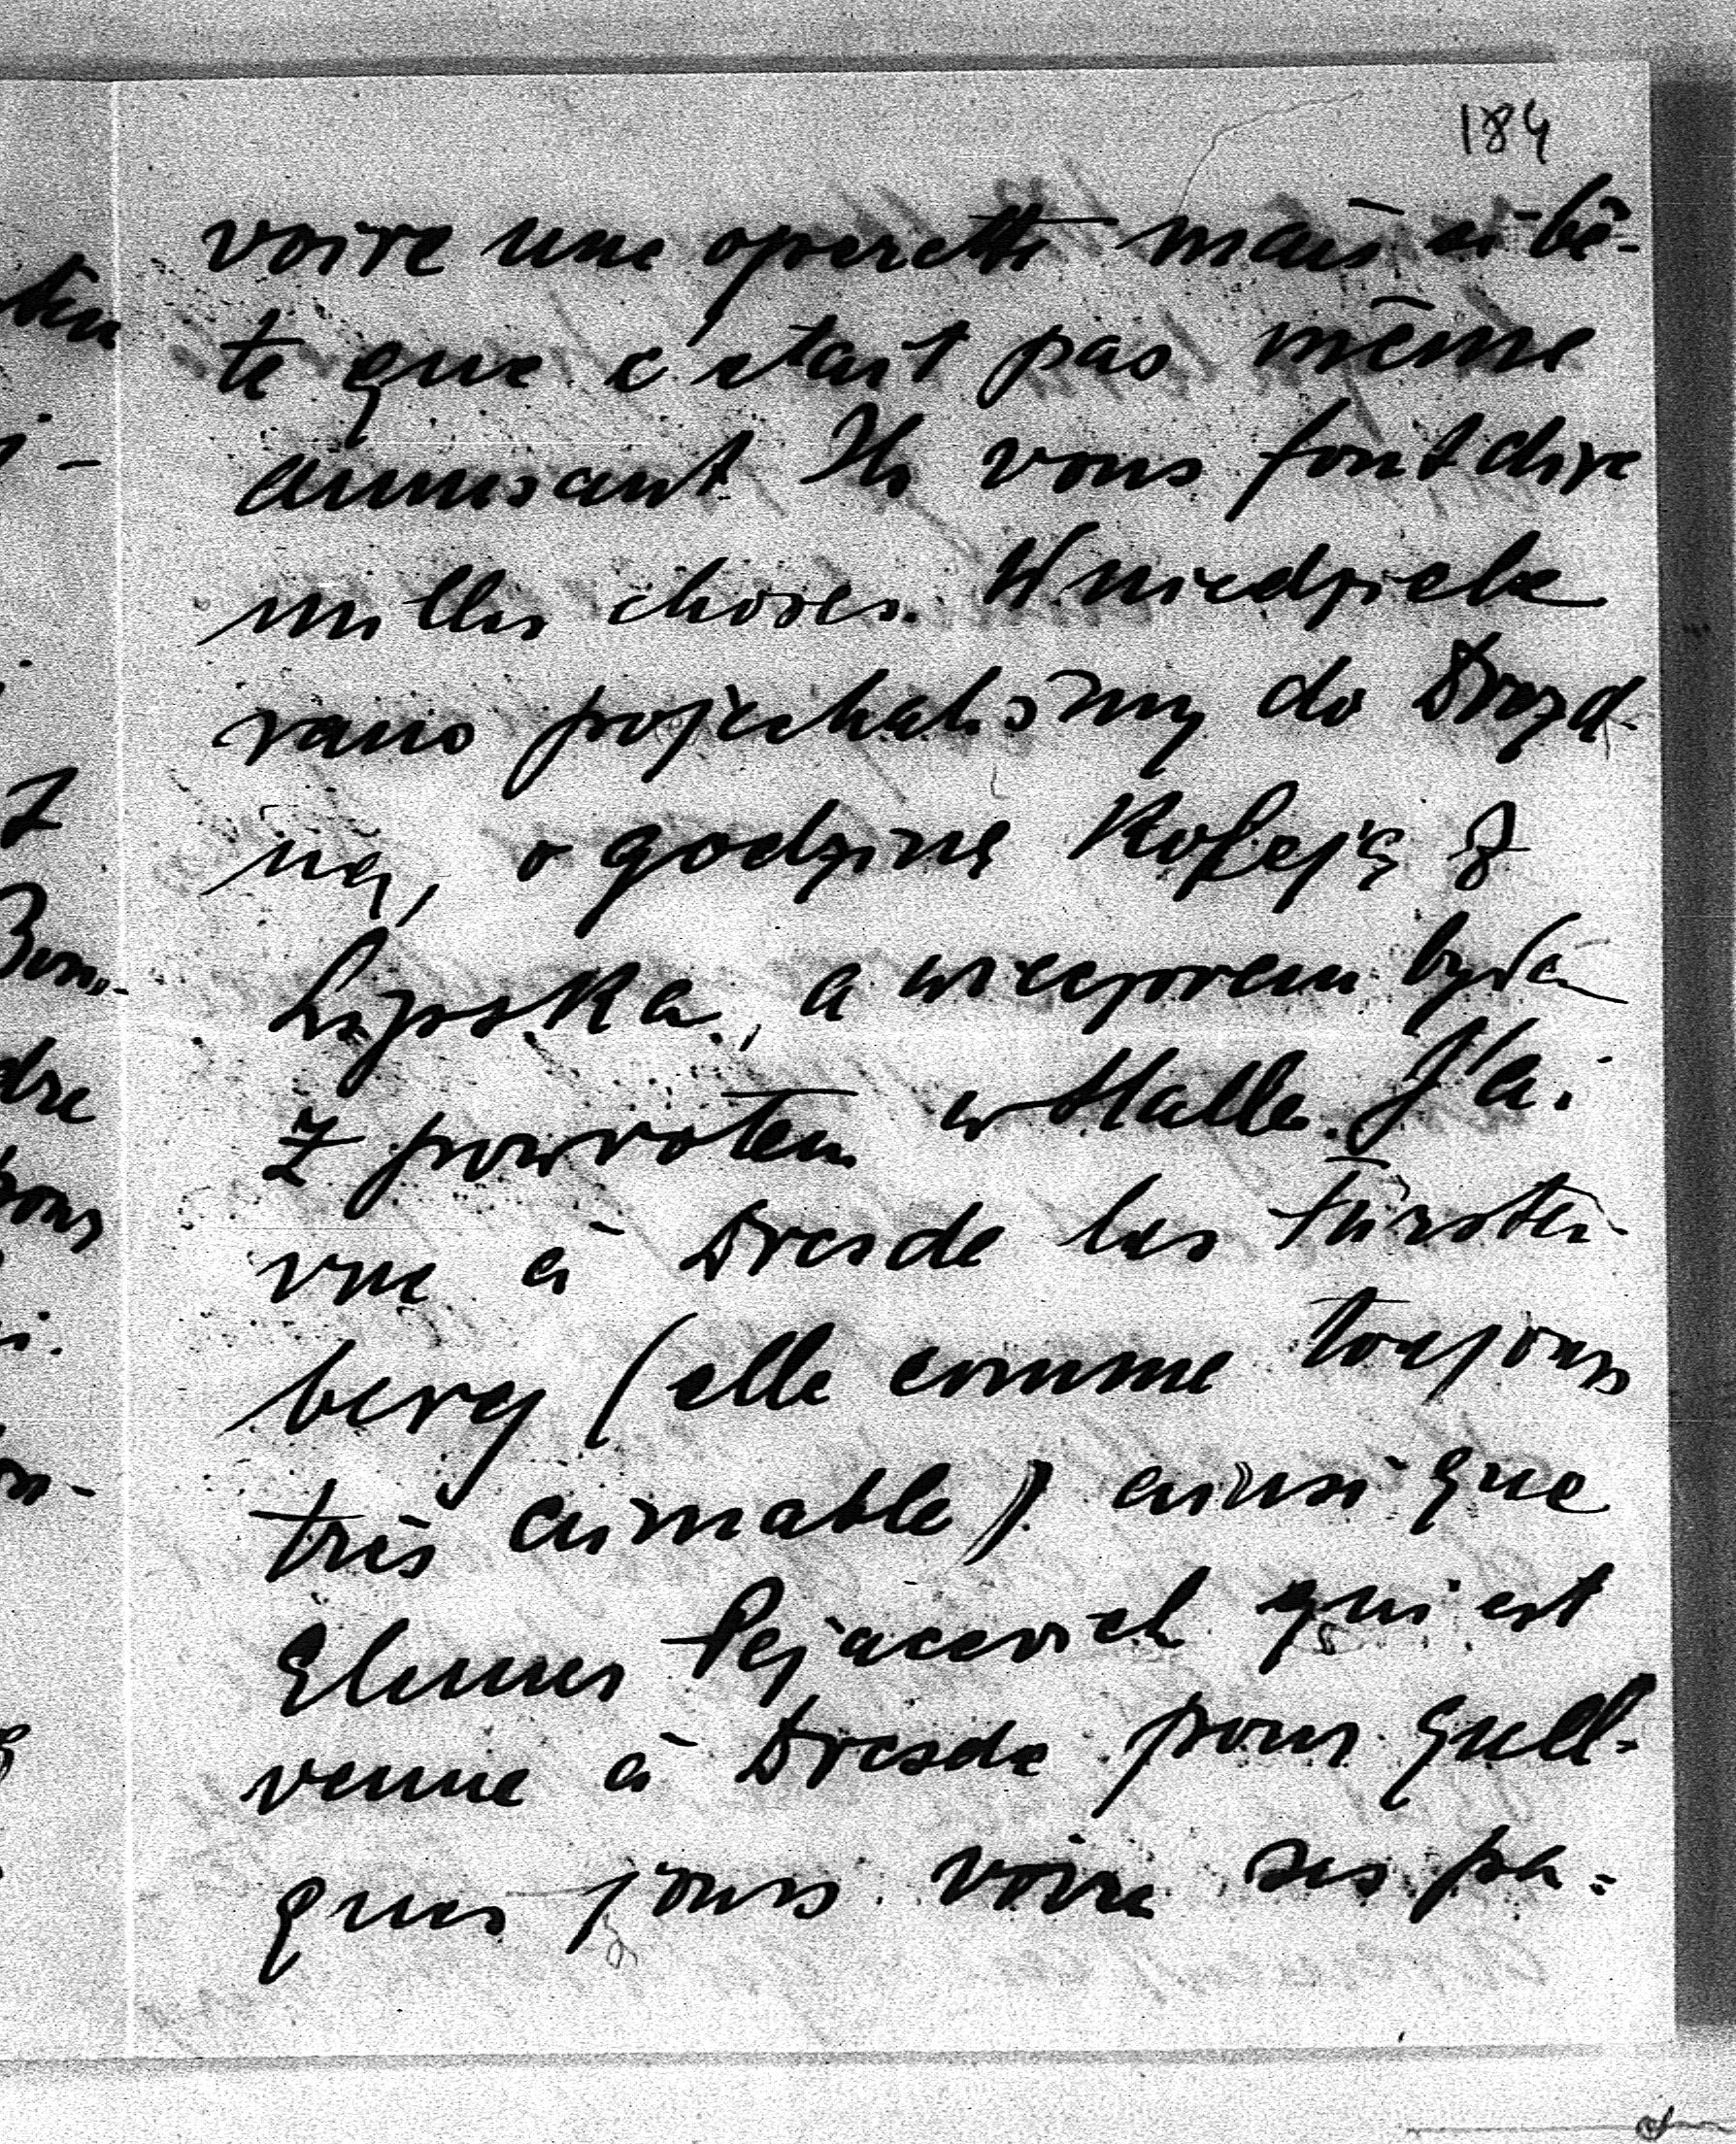 184
voire une operette mais si bê-
te que c'etait pas même
amusant Ils vous font dire
milles choses. W niedziele
rano pojechaliśmy do Drezd-
na, o godzinę koleją z
Lipska, a wieczorem była
z powrotem w Halle. J'ai
vue à Dresde les Fürsten-
berg (elle comme toujours
très aimable) ainsi que
Pejacevich qui est
venue à Dresde pour quel-
ques jours voire ses pa-